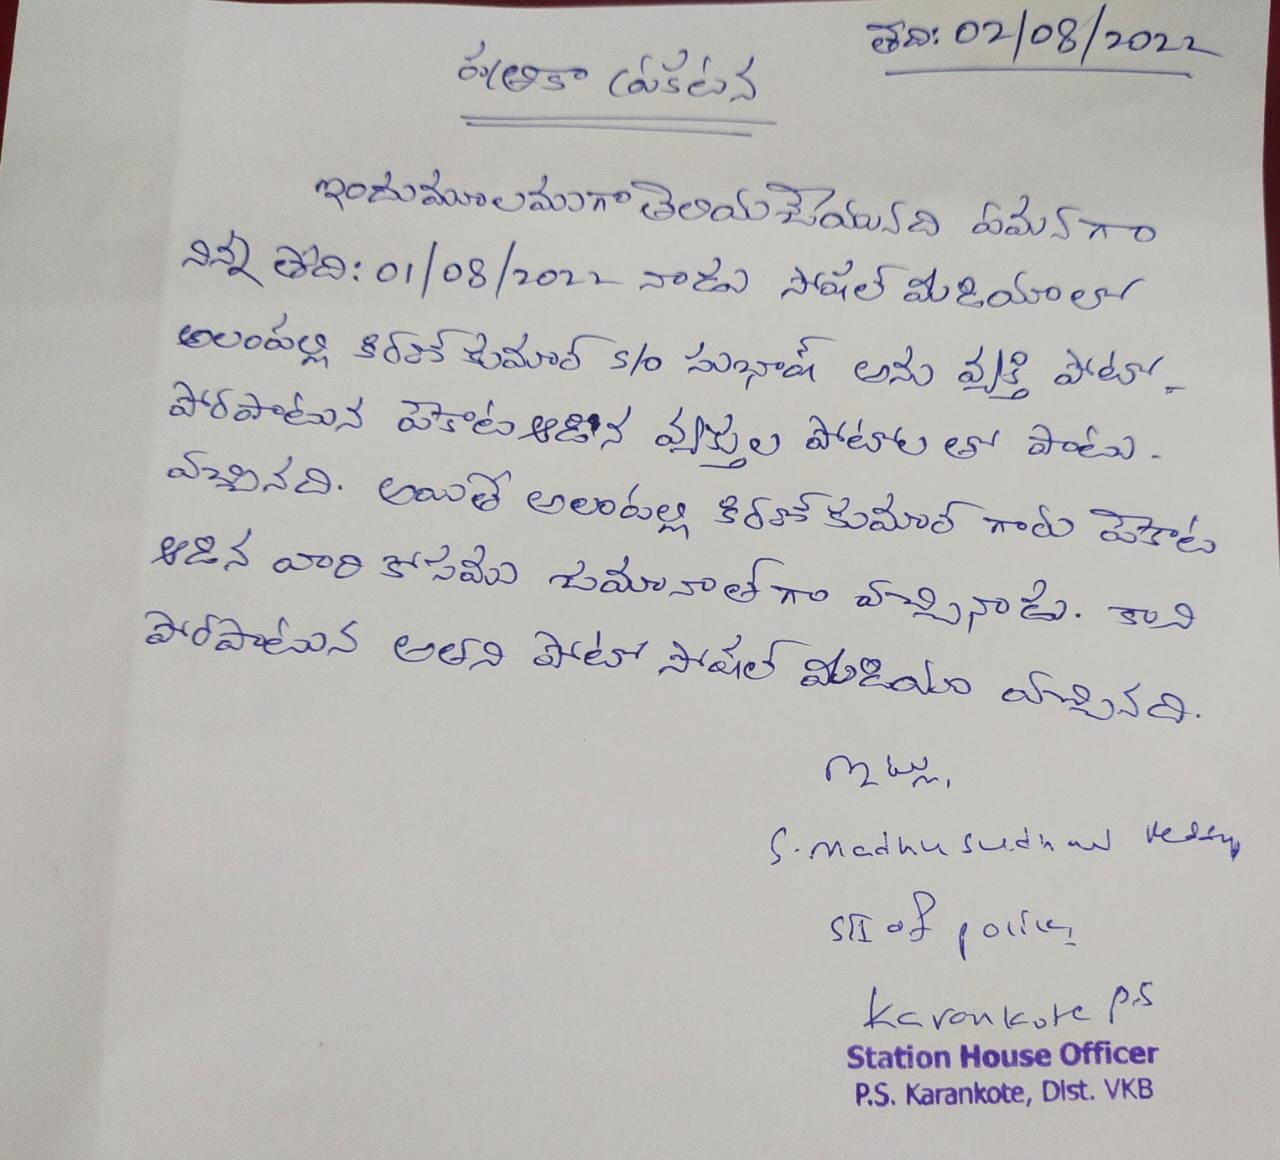 తేది: 02/08/2022
పత్రికా ప్రకటన
ఇందుమూలముగా తెలియజేయునది ఏమనగా
నిన్న తేది: 01/08/2022 నాడు సోషల్ మీడియాలో
అలంపల్లి కిరణ్ కుమార్ S/o సుభాష్ అను వ్యక్తి పోటో
పొరపాటున పేకాట ఆడిన వ్యక్తుల పోటోల తో పాటు.
వచ్చినది. అయితే అలంపల్లి కిరణ్ కుమార్ గారు పేకాట
ఆడిన వారి కోసము జమానాత్ గా వచ్చినాడు. కాని
పొరపాటున అతని పోటో సోషల్ మీడియా వచ్చినది.
ఇట్లు,
S. Madhu sudhan Reddy
SI of police
Karankote P.S
Station House Officer
P.S. Karankote, Dist. VKB